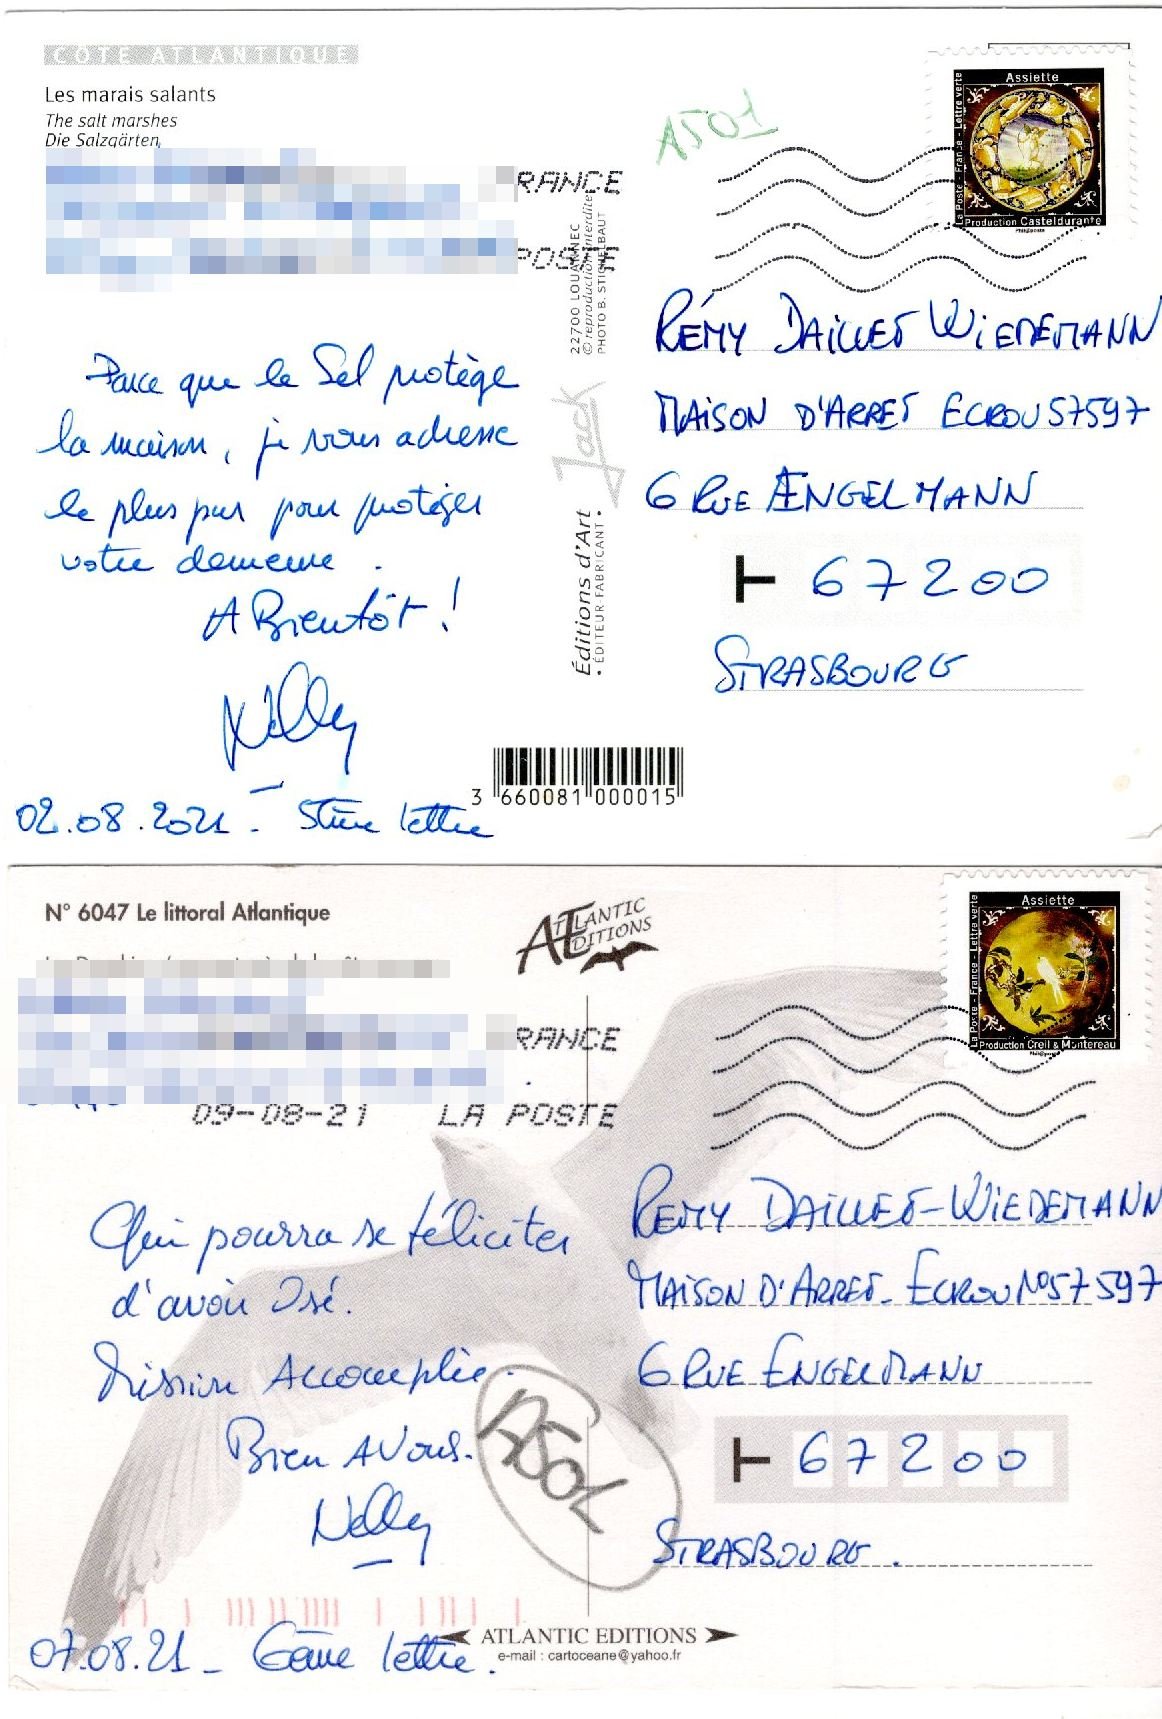 CÔTE ATLANTIQUE
Les marais salants
The salt marshes
Die Salzgärten,
A501
Assiette
La Poste - France - Lettre verte
Production Casteldurante
Phil@poste
RANCE
POSTE
22700 LOUANNEC
© reproduction interdite
PHOTO B. STICHELBAUT
Jack
Éditions d'Art
ÉDITEUR FABRICANT
Parce que le Sel protège
la maison, je vous adresse
le plus pur pour protéger
votre demeure.
A Bientôt !
Nelly
02.08.2021 - 5ème lettre
RÉMY DAILLET WIEDEMANN
MAISON D'ARRET ECROU 57597
6 RUE ENGELMANN
67200
STRASBOURG
3 660081 000015
N° 6047 Le littoral Atlantique
ATLANTIC EDITIONS
Assiette
La Poste - France - Lettre verte
Production Creil & Montereau
Phil@poste
RANCE
09-08-21 LA POSTE
Qui pourra se féliciter
d'avoir Osé.
Mission Accomplie.
Bien A Vous.
Nelly
A501
07.08.21 - 6ème lettre.
REMY DAILLET-WIEDEMANN
MAISON D'ARRET - ECROU N°57597
6 RUE ENGELMANN
67200
STRASBOURG.
ATLANTIC EDITIONS
e-mail : cartoceane@yahoo.fr